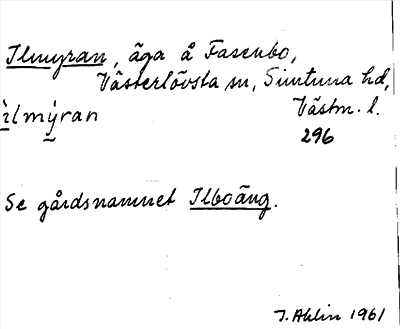 Ilmyran, äga å Fasenbo,
Västerlövsta sn, Simtuna hd,
ìlmy̌ran Västm. l.
296
Se gårdsnamnet Ilboäng.
J. Ahlin 1961